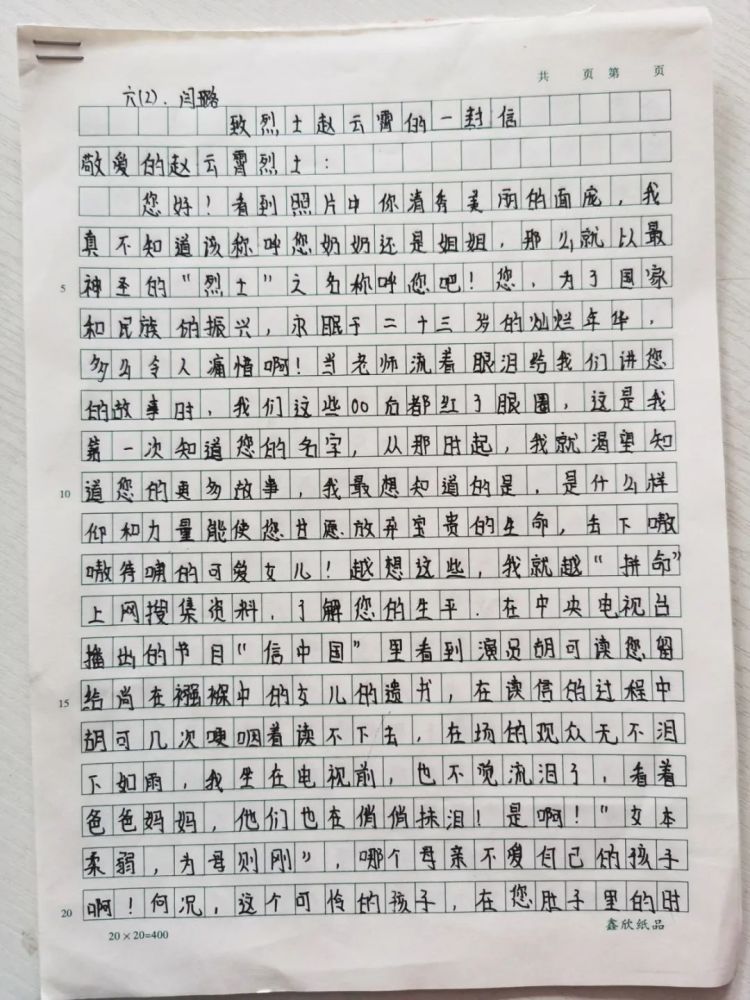 共 页 第 页
六(2). 闫璐
致烈士赵云霄的一封信
敬爱的赵云霄烈士:
您好!看到照片中你清秀美丽的面庞,我
真不知道该称呼您奶奶还是姐姐,那么就以最
5 神圣的“烈士”之名称呼您吧!您,为了国家
和民族的振兴,永眠于二十三岁的灿烂年华,
多么令人痛惜啊!当老师流着眼泪给我们讲您
的故事时,我们这些00后都红了眼圈,这是我
第一次知道您的名字,从那时起,我就渴望知
10 道您的更多故事,我最想知道的是,是什么样
仰和力量能使您甘愿放弃宝贵的生命,去下嗷
嗷待哺的可爱女儿!越想这些,我就越“拼命”
上网搜集资料,了解您的生平.在中央电视台
播出的节目“信中国”里看到演员胡可读您留
15 给尚在襁褓中的女儿的遗书,在读信的过程中
胡可几次哽咽着读不下去,在场的观众无不泪
下如雨,我坐在电视前,也不觉流泪了,看着
爸爸妈妈,他们也在俏俏抹泪!是啊!“女本
柔弱,为母则刚”,哪个母亲不爱自己的孩子
20 啊!何况,这个可怜的孩子,在您肚子里的时
20×20=400
鑫欣纸品